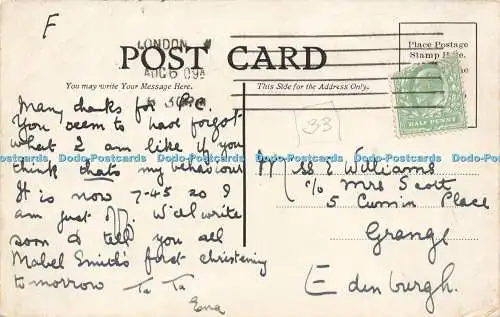 F
LONDON
AUG 6 09
POST CARD
Place Postage
Stamp Here.
HALF PENNY
You may write Your Message Here.
This Side for the Address Only.
Many thanks for P.C.
You seem to have forgot
what I am like if you
think that's my behaviour
It is now 7-45 so I
am just. Will write
soon & tell you all
Mabel Smith's first christening
tomorrow Ta Ta
Ena
33
Miss E Williams
c/o Mrs Scott
5 Cumin Place
Grange
Edinburgh.
Dodo-Postcards Dodo-Postcards Dodo-Postcards Dodo-Postcards Dodo-Postcards Dodo-Postcards